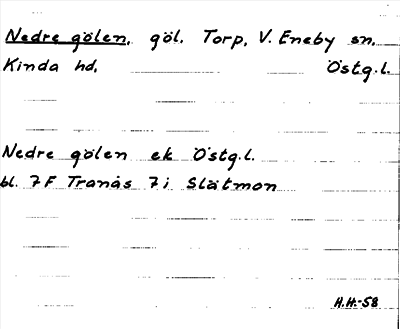 Nedre gölen, göl. Torp, V. Eneby sn.
Kinda hd. Östg.l.
Nedre gölen ek Östg.l.
bl. 7F Tranås 7i Slätmon
H.H.-58